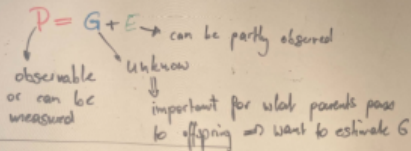 P = G + E → can be partly observed
observable
or can be
measured
unknow
important for what parents pass
to offspring => want to estimate G